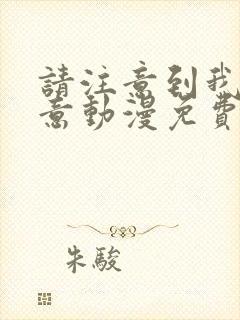 請注意到我
意動漫免費
朱駿